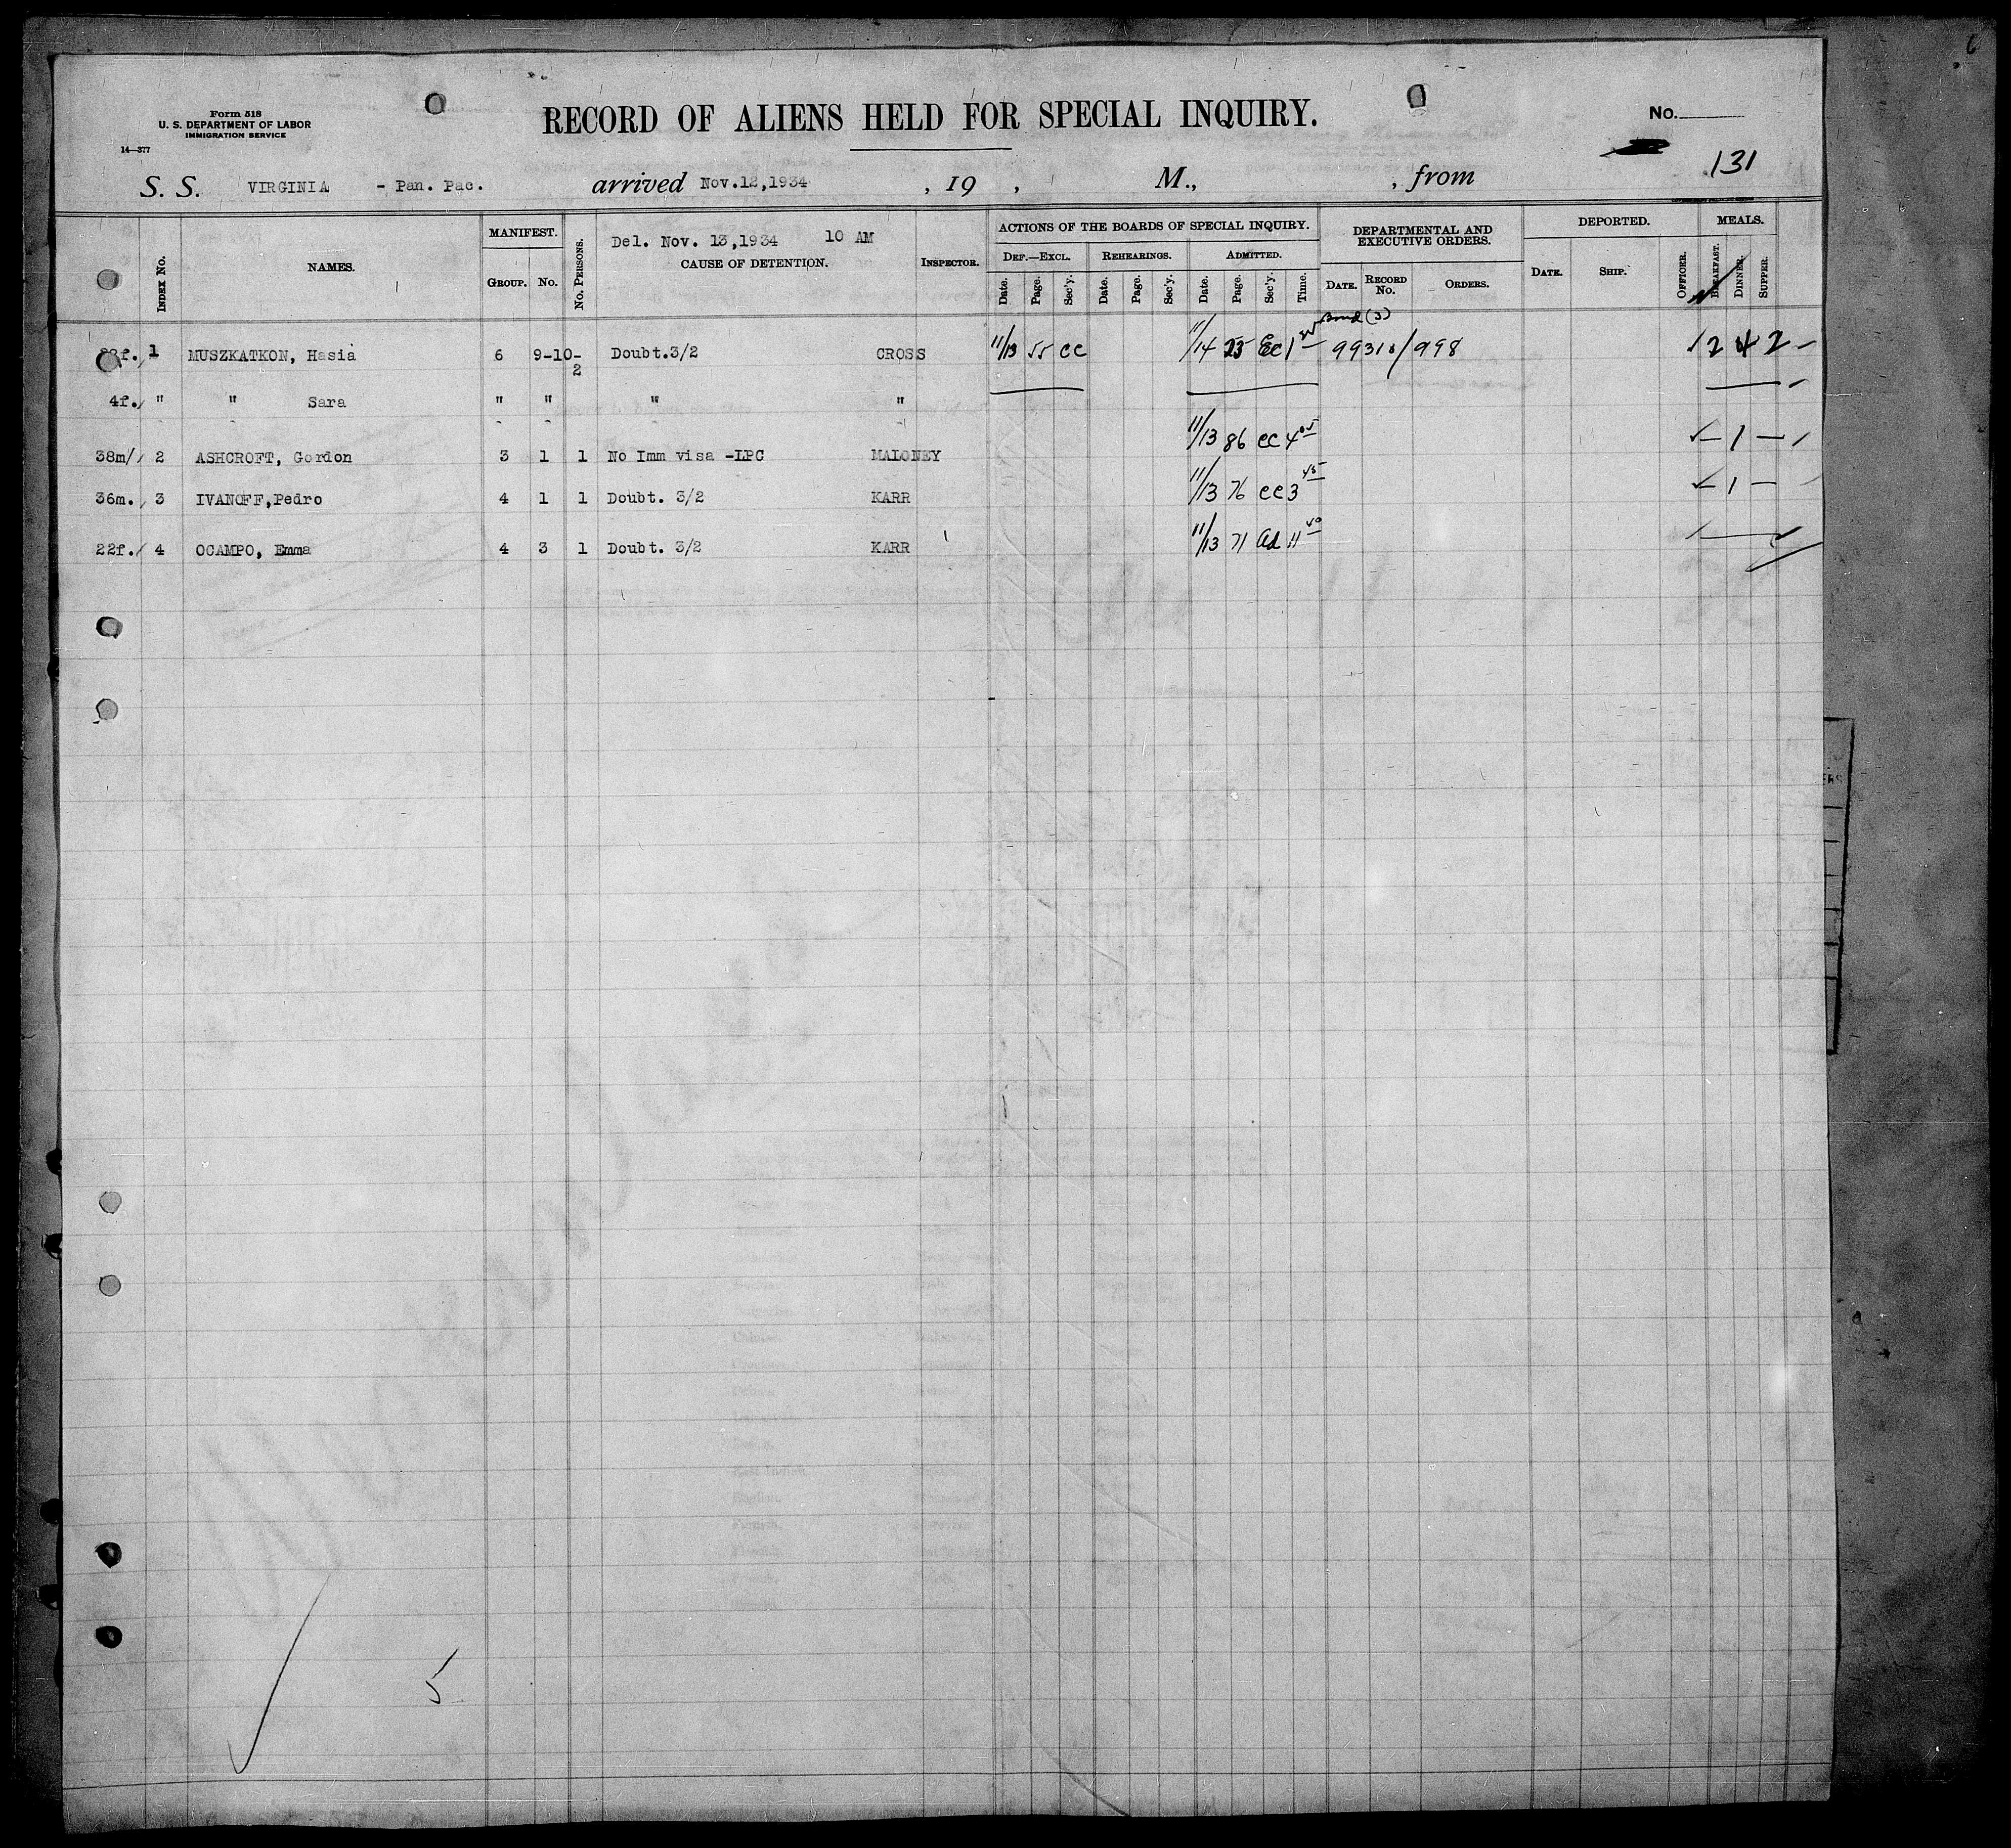 Form 518
U. S. DEPARTMENT OF LABOR
IMMIGRATION SERVICE
14—377
RECORD OF ALIENS HELD FOR SPECIAL INQUIRY.
No.
131
S. S. VIRGINIA - Pan. Pac. arrived Nov.12,1934 , 19 , M., , from
INDEX No. NAMES. MANIFEST. GROUP. No. No. PERSONS. Del. Nov. 13,1934 10 AM CAUSE OF DETENTION. INSPECTOR. ACTIONS OF THE BOARDS OF SPECIAL INQUIRY. DEF.—EXCL. Date. Page. Sec'y. REHEARINGS. Date. Page. Sec'y. ADMITTED. Date. Page. Sec'y. Time. DEPARTMENTAL AND EXECUTIVE ORDERS. DATE. RECORD No. ORDERS. DEPORTED. DATE. SHIP. OFFICER. MEALS. BREAKFAST. DINNER. SUPPER.
Bond (3)
1 MUSZKATKON, Hasia 6 9-10- 2 Doubt.3/2 CROSS 11/13 55 CC 11/14 25 EC 99310/998 2 4 2 -
4f. " " Sara " " " "
38m/ 2 ASHCROFT, Gordon 3 1 1 No Imm visa -LPC MALONEY 11/13 86 CC 4 05 — 1 —
36m. 3 IVANOFF,Pedro 4 1 1 Doubt. 3/2 KARR 11/13 76 CC 3 45 — 1 —
22f. 4 OCAMPO, Emma 4 3 1 Doubt. 3/2 KARR 11/13 71 ad 11 40
5